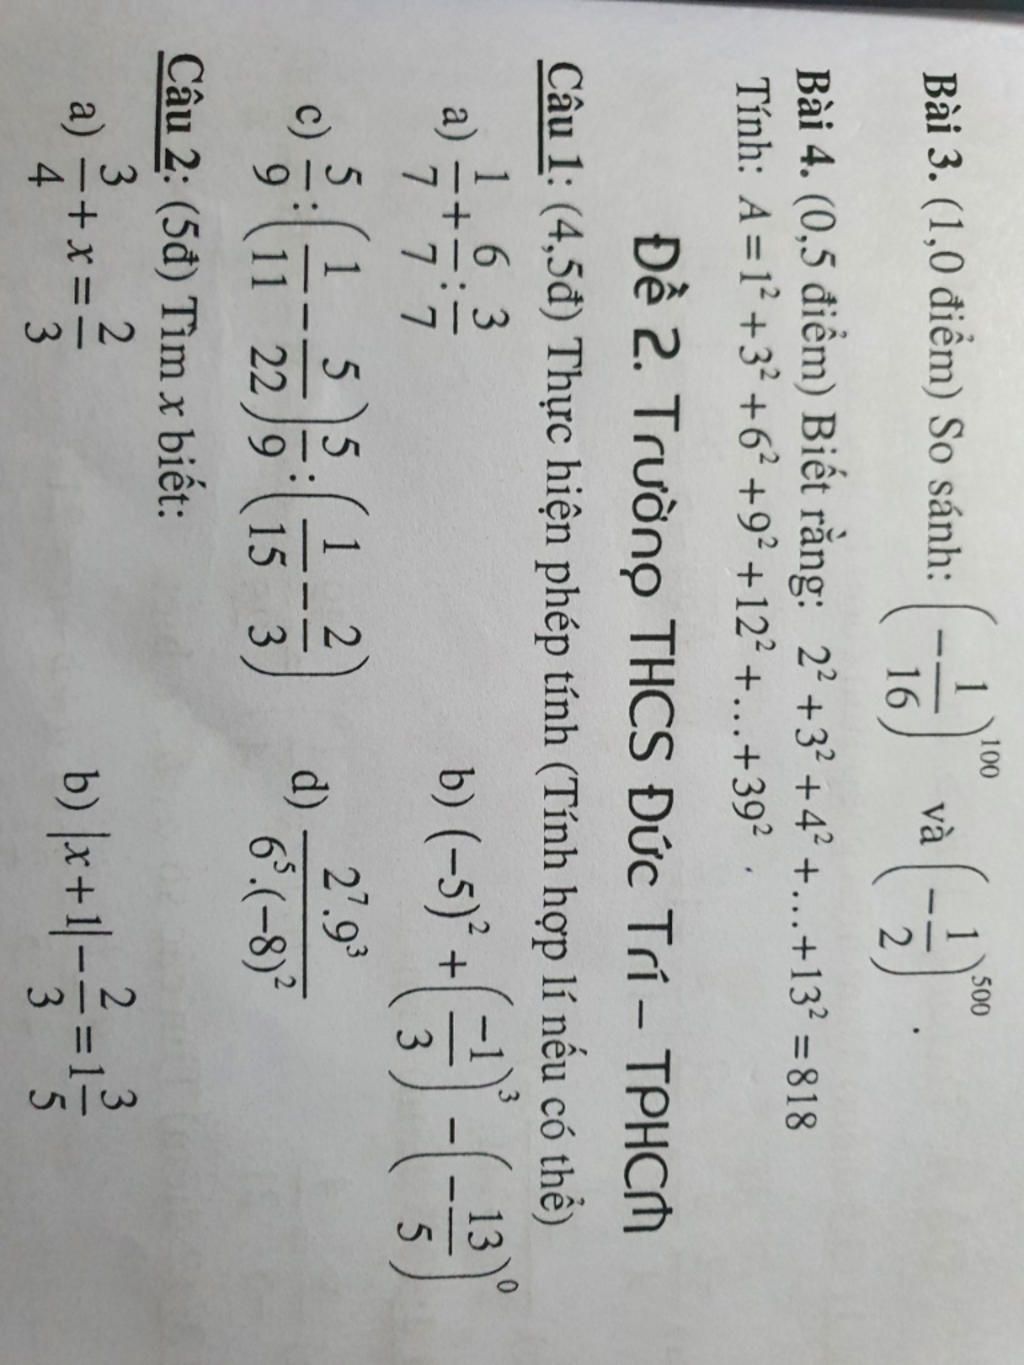 Bài 3. (1,0 điểm) So sánh: (-1/16)^100 và (-1/2)^500.
Bài 4. (0,5 điểm) Biết rằng: 2² + 3² + 4² + ... + 13² = 818
Tính: A = 1² + 3² + 6² + 9² + 12² + ... + 39².
Đề 2. Trường THCS Đức Trí – TPHCM
Câu 1: (4,5đ) Thực hiện phép tính (Tính hợp lí nếu có thể)
a) 1/7 + 6/7 : 3/7 b) (-5)² + (-1/3)³ - (-13/5)⁰
c) 5/9 : (1/11 - 5/22) 5/9 : (1/15 - 2/3) d) 2⁷.9³/6⁵.(-8)²
Câu 2: (5đ) Tìm x biết:
a) 3/4 + x = 2/3 b) |x + 1| - 2/3 = 1 3/5